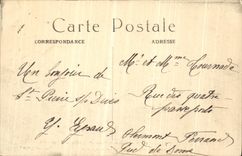 Carte Postale
CORRESPONDANCE
ADRESSE
Un bonjour de
St Pierre s/ Dives
Mr et Mme Tournade
Rue des quatre
passeports
Clermont Ferrand
Puy de Dôme